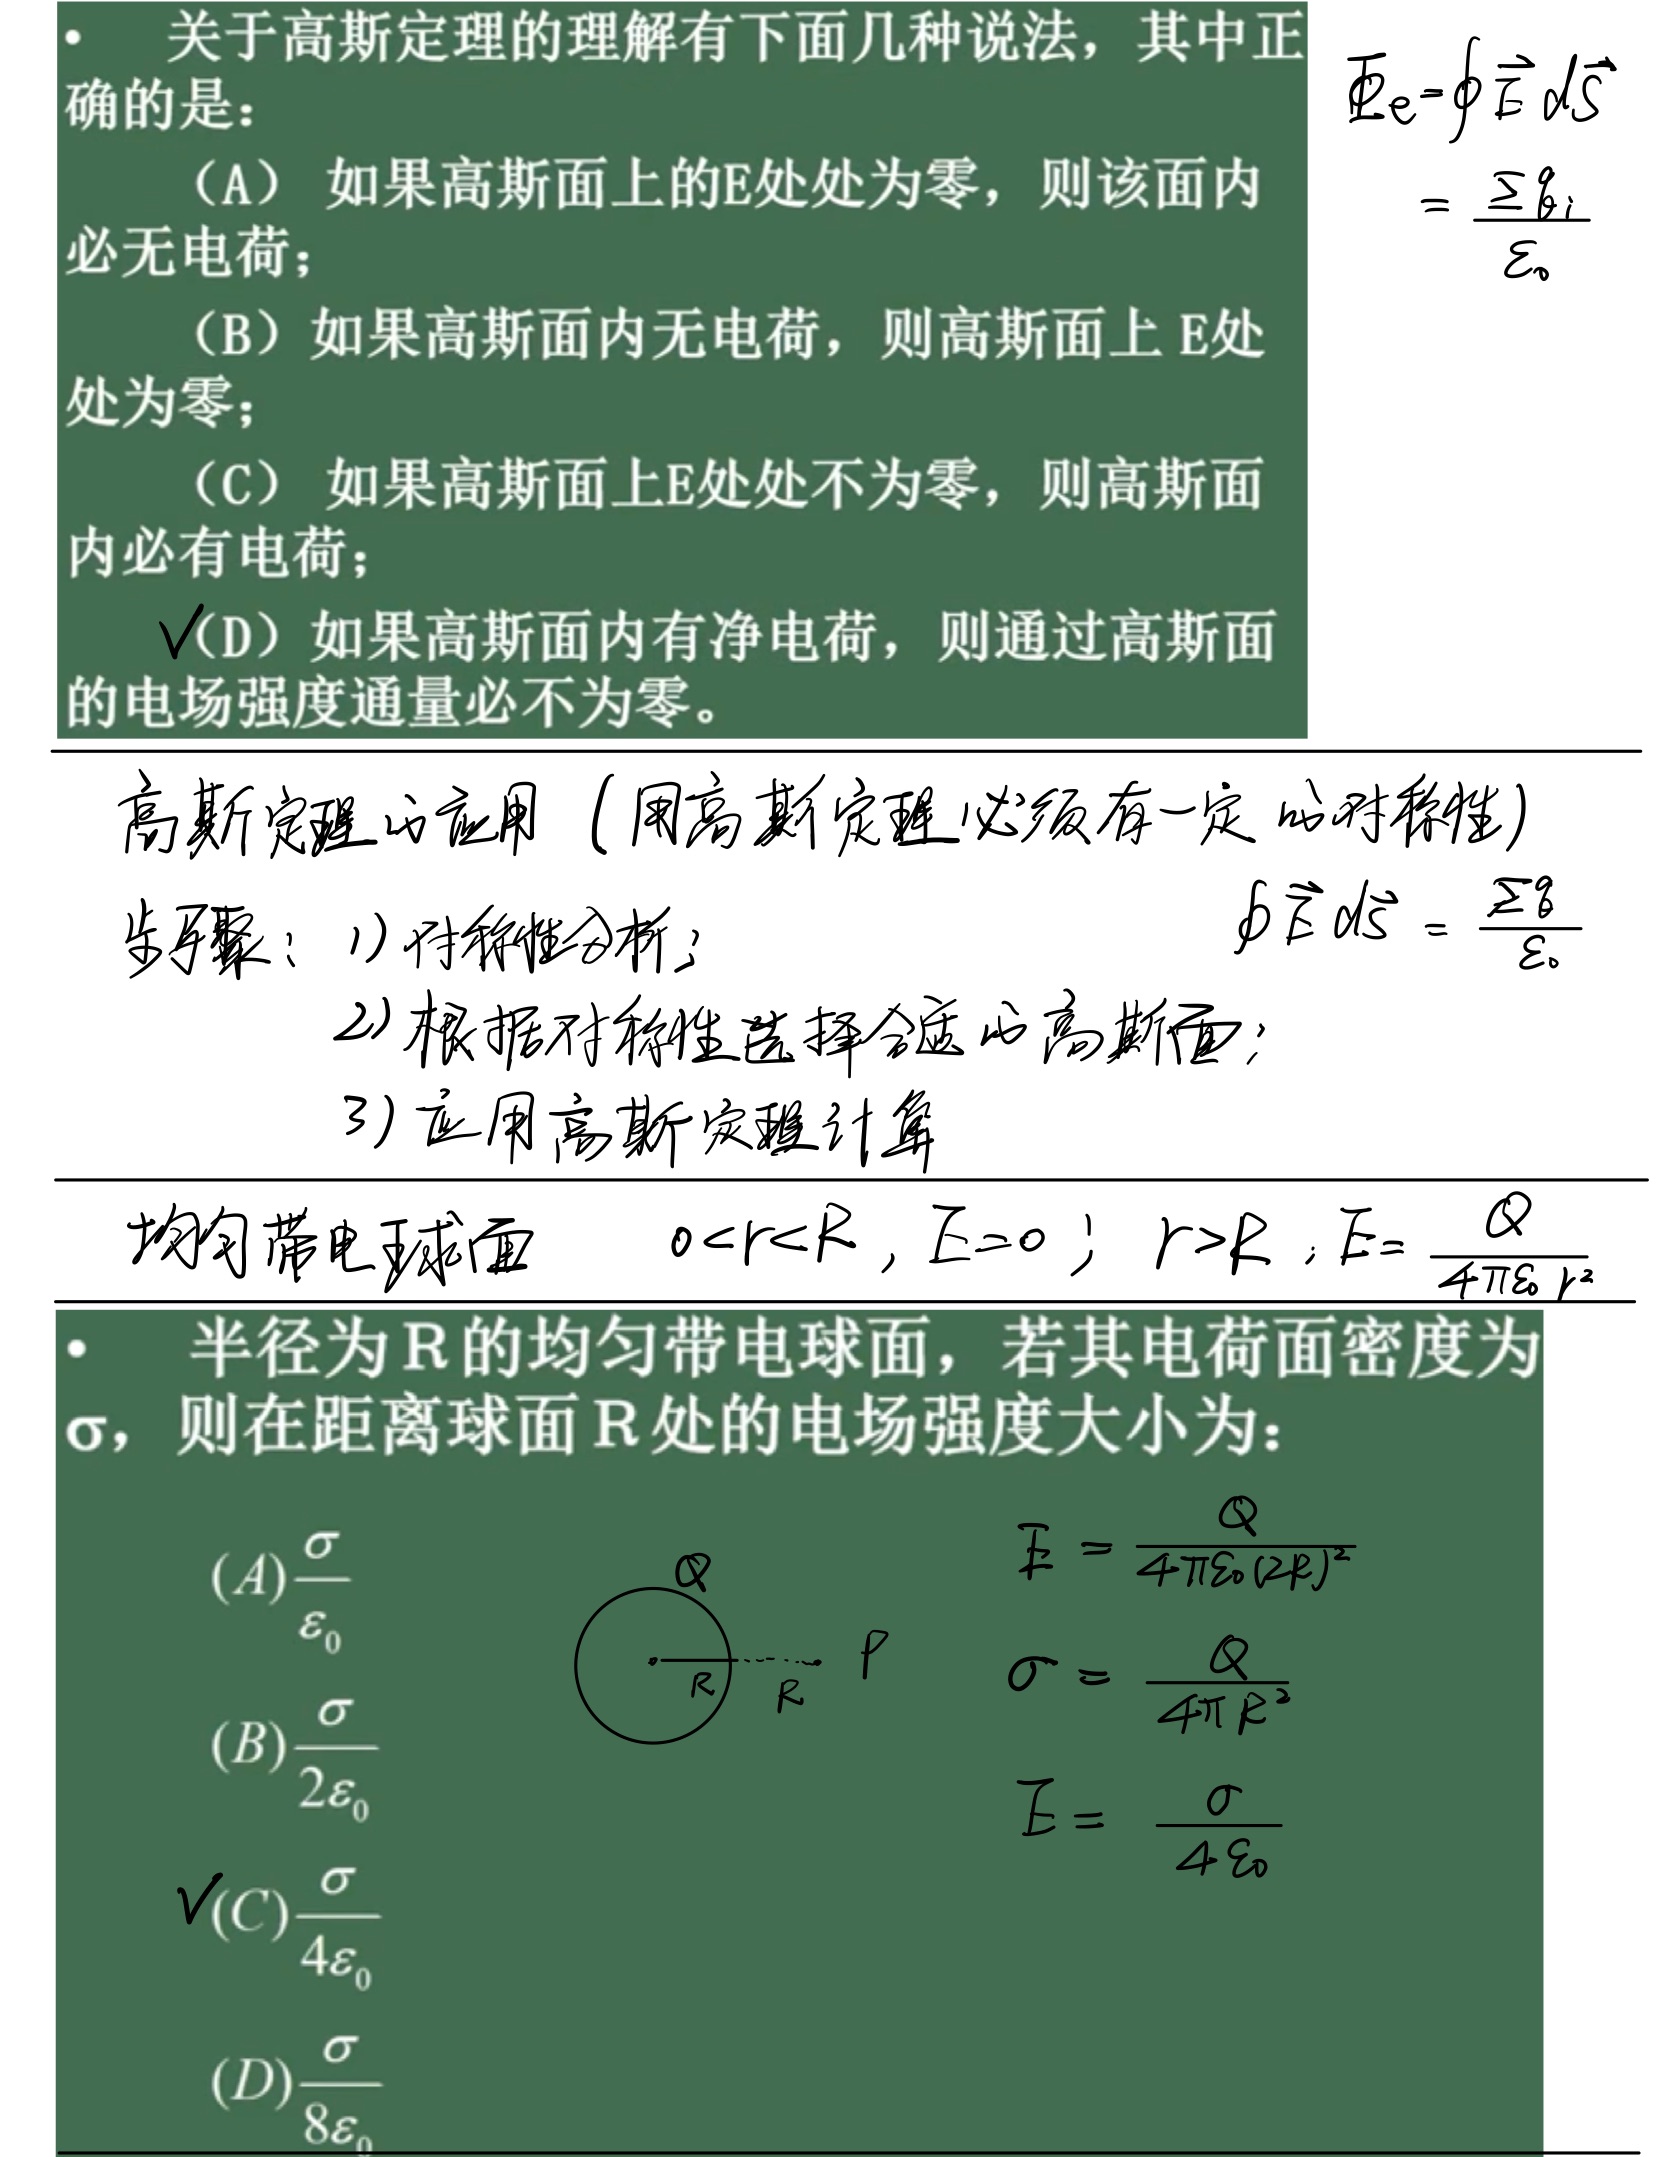 • 关于高斯定理的理解有下面几种说法，其中正
确的是：
（A） 如果高斯面上的E处处为零，则该面内
必无电荷；
（B）如果高斯面内无电荷，则高斯面上 E处
处为零；
（C） 如果高斯面上E处处不为零，则高斯面
内必有电荷；
✓（D）如果高斯面内有净电荷，则通过高斯面
的电场强度通量必不为零。
Φe=∮E⃗ dS⃗
= Σqi / ε0
高斯定理的应用（用高斯定理必须有一定的对称性）
步骤：1）对称性分析；
∮E⃗ dS⃗ = Σq / ε0
2）根据对称性选择合适的高斯面；
3）应用高斯定理计算
均匀带电球面 0<r<R , E=0 ; r>R , E= Q / 4πε0 r²
• 半径为R的均匀带电球面，若其电荷面密度为
σ，则在距离球面R处的电场强度大小为：
(A) σ / ε0
(B) σ / 2ε0
✓(C) σ / 4ε0
(D) σ / 8ε0
Q
R R P
E = Q / 4πε0(2R)²
σ = Q / 4πR²
E = σ / 4ε0